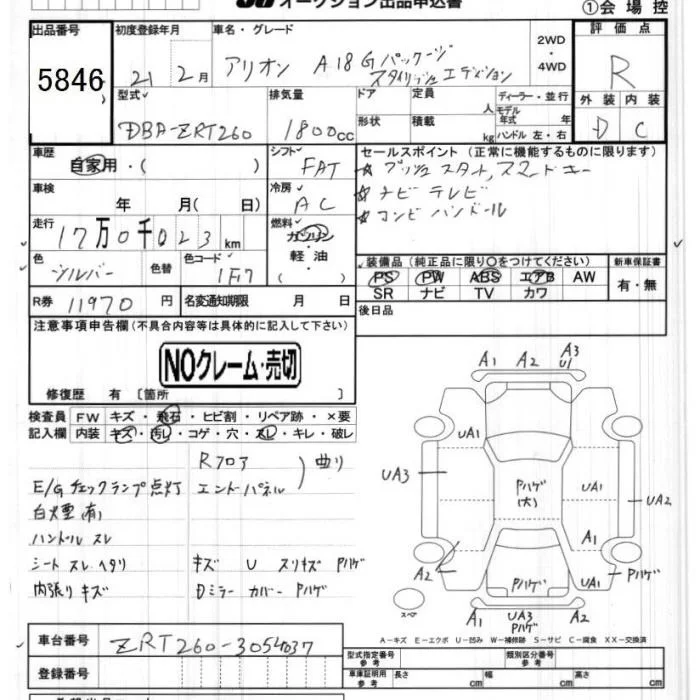 オークション出品申込書
①会場控
出品番号 初度登録年月 車名・グレード 2WD ・ 4WD 評価点
5846 21 2月 アリオン A18 Gパッケージ スタイリッシュエディション R
型式 排気量 ドア 定員 人 ディーラー・並行 外装 内装
DBA-ZRT260 1800cc 形状 積載 kg モデル年式 年 ハンドル 左・右 D C
車歴 自家用・( ) シフト FAT セールスポイント (正常に機能するものに限ります)
☆ プッシュスタート,スマートキー
車検 年 月( 日) 冷房 AC ☆ ナビ テレビ
☆ コンビ ハンドル
走行 17万0千023km 燃料 ガソリン ・ 軽油
装備品 (純正品に限り〇をつけてください) 新車保証書
色 シルバー 色替 色コード 1F7 PS PW ABS エアB AW 有・無
SR ナビ TV カワ
R券 11970円 名変通知期限 月 日 後日品
注意事項申告欄(不具合内容等は具体的に記入して下さい)
NOクレーム・売切
修復歴 有 〔箇所 〕
検査員 FW キズ・飛石・ヒビ割・リペア跡・×要
記入欄 内装 キズ・汚レ・コゲ・穴・スレ・キレ・破レ
Rフロア
エンドパネル ) 曲り
E/Gチェックランプ点灯
白煙(有)
ハンドル スレ
シート スレ ヘタリ キズ U スリキズ Pハゲ
内張り キズ Dミラー カバー Pハゲ
A1 A2 A3 U1
UA1
UA3 Pハゲ (大) UA1 UA2
A1
A2 Pハゲ UA1 Pハゲ
スペア A1 UA3 Pハゲ A2
A-キズ E-エクボ U-凹み W-補修跡 S-サビ C-腐食 XX-交換済
車台番号 ZRT260-3054037
登録番号
型式指定番号 参考 類別区分番号 参考
車庫証明用 参考 長さ cm 幅 cm 高さ cm